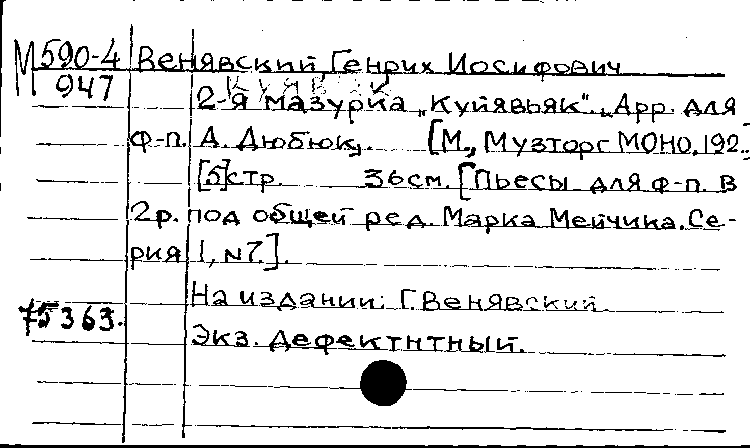 М 590-4 Венявский, Генрих Иосифович
947 КУЯВЯК
2-я мазурка „Куйявьяк". Арр. для
ф-п. А. Дюбюк. [М., Музторг МОНО, 192..]
[5] стр. 36 см. [Пьесы для ф-п. в
2 р. под общей ред. Марка Мейчика. Се-
рия 1, N 7.].
На издании: Г. Венявский
75363.
Экз. дефектнтный.